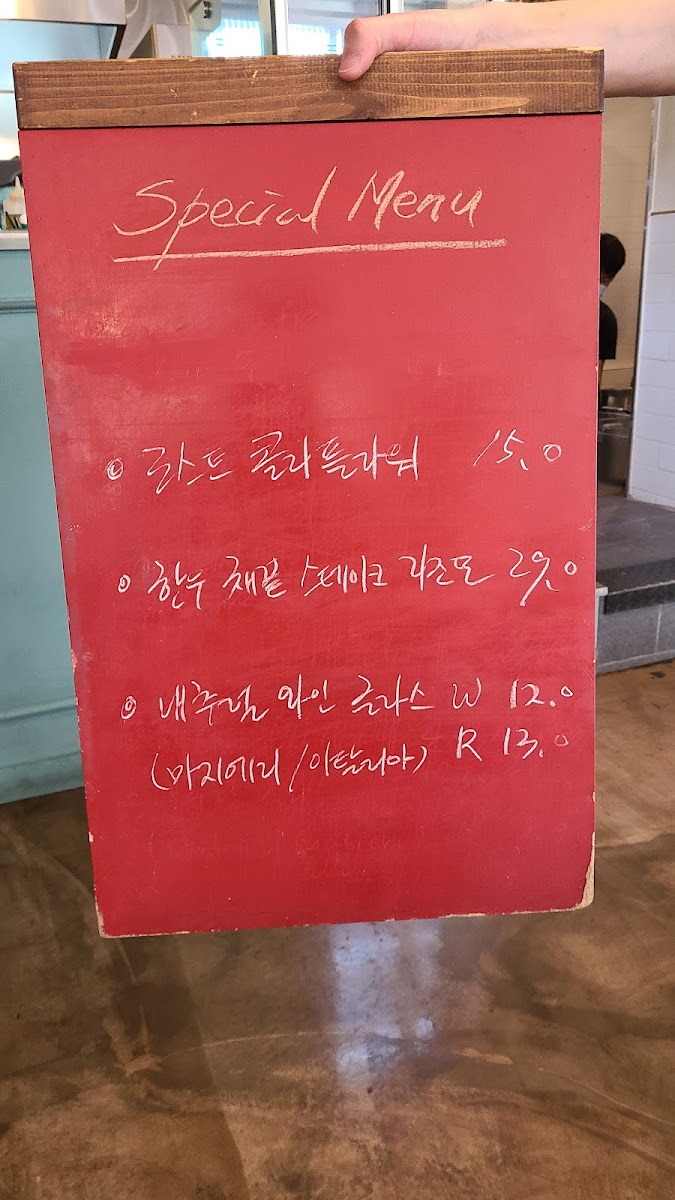 Special Menu
로스트 콜리플라워 15.0
한우 채끝 스테이크 리조또 29.0
내추럴 와인 글라스 W 12.0
(마지에리/이탈리아) R 13.0